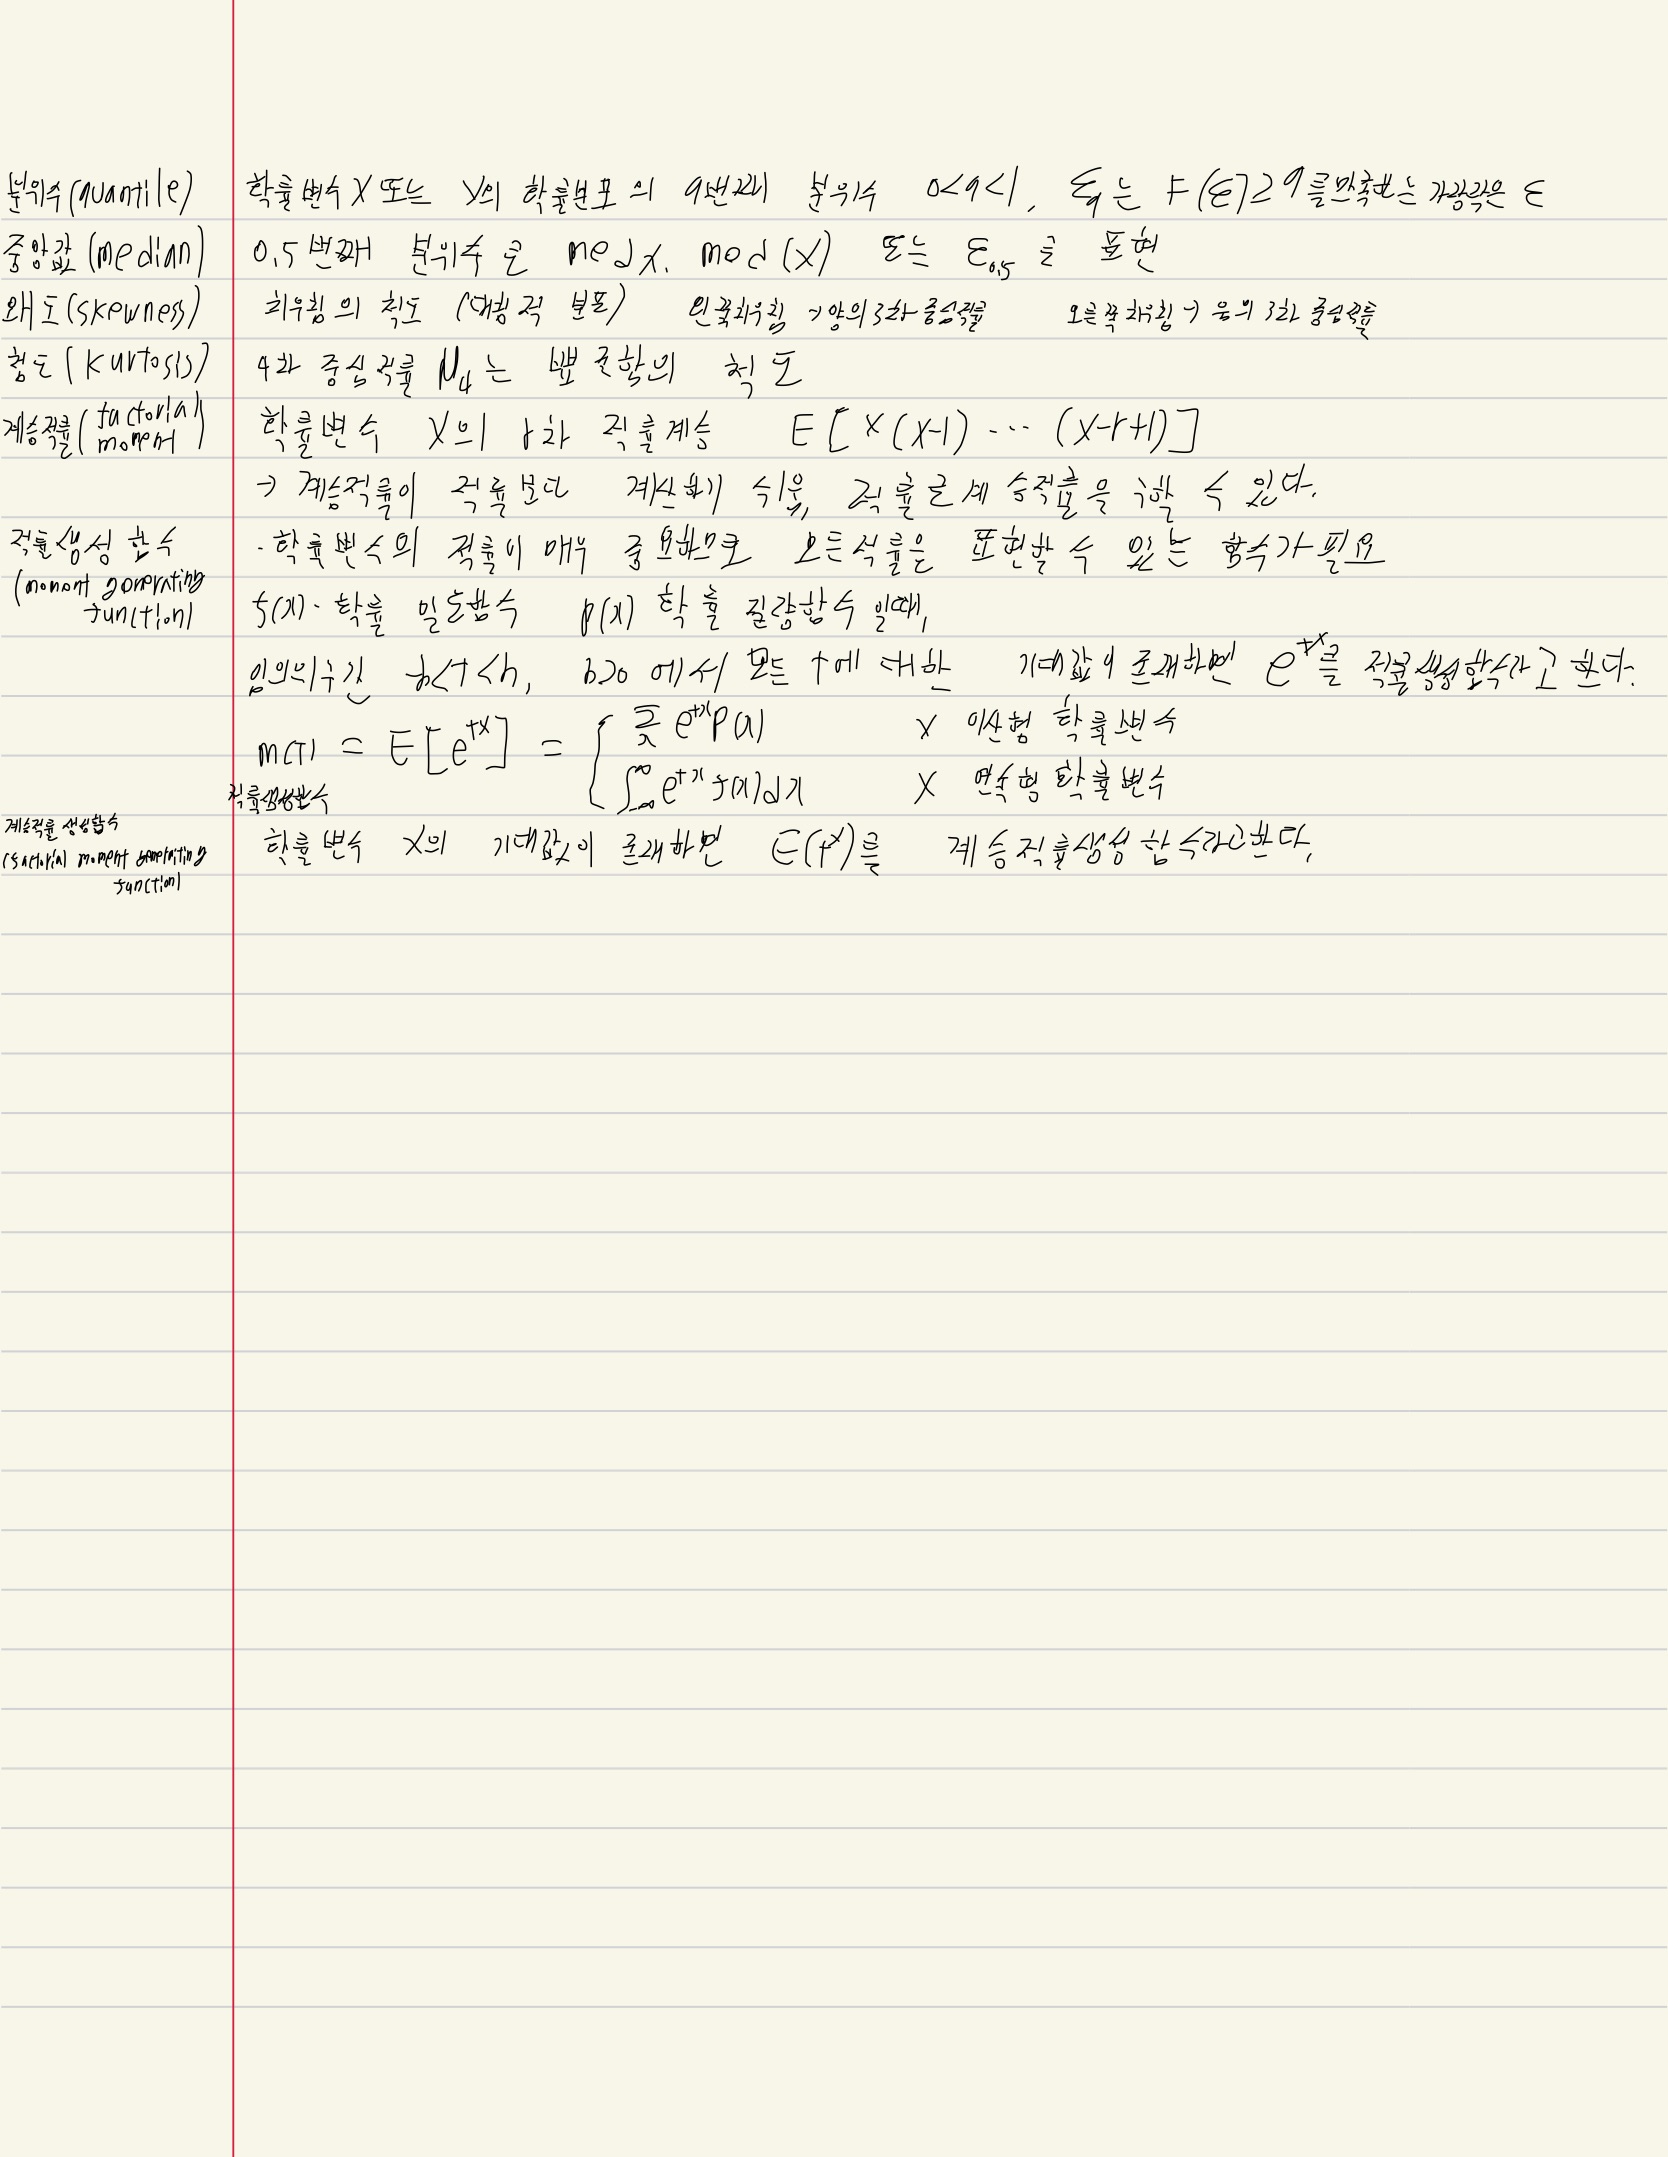 분위수(quantile) 확률변수 X 또는 X의 확률분포의 q번째 분위수 0<q<1, ξq는 F(ξ)≥q를 만족하는 가장작은 ξ
중앙값(median) 0.5번째 분위수로 med x, med(X) 또는 ξ0.5로 표현
왜도(skewness) 치우침의 척도 (대칭적 분포) 왼쪽치우침 → 양의 3차 중심적률 오른쪽 치우침 → 음의 3차 중심적률
첨도(kurtosis) 4차 중심적률 μ4는 뾰족함의 척도
계승적률(factorial moment) 확률변수 X의 r차 적률계승 E[X(X-1)⋯(X-r+1)]
→ 계승적률이 적률보다 계산하기 쉬움, 적률로 계승적률을 구할 수 있다.
적률생성함수 · 확률변수의 적률이 매우 중요하므로 모든적률을 표현할 수 있는 함수가 필요
(moment generating function) f(x)· 확률 밀도함수 p(x) 확률 질량함수 일때,
임의의구간 -h<t<h, h>0 에서 모든 t에 대한 기대값이 존재하면 e^tx를 적률생성함수라고 한다.
m(t) = E[e^tX] = { Σx e^tx p(x) X 이산형 확률변수
∫-∞^∞ e^tx f(x)dx X 연속형 확률변수
적률생성함수
계승적률 생성함수
(factorial moment generating function) 확률변수 X의 기대값이 존재하면 E(t^X)를 계승적률생성함수라고한다.